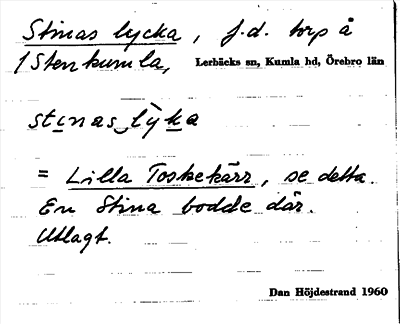 Stinas lycka, f.d. torp å
1 Stenkumla, Lerbäcks sn, Kumla hd, Örebro län
stinas lỳka
= Lilla Toskekärr, se detta.
En Stina bodde där.
Utlagt.
Dan Höjdestrand 1960